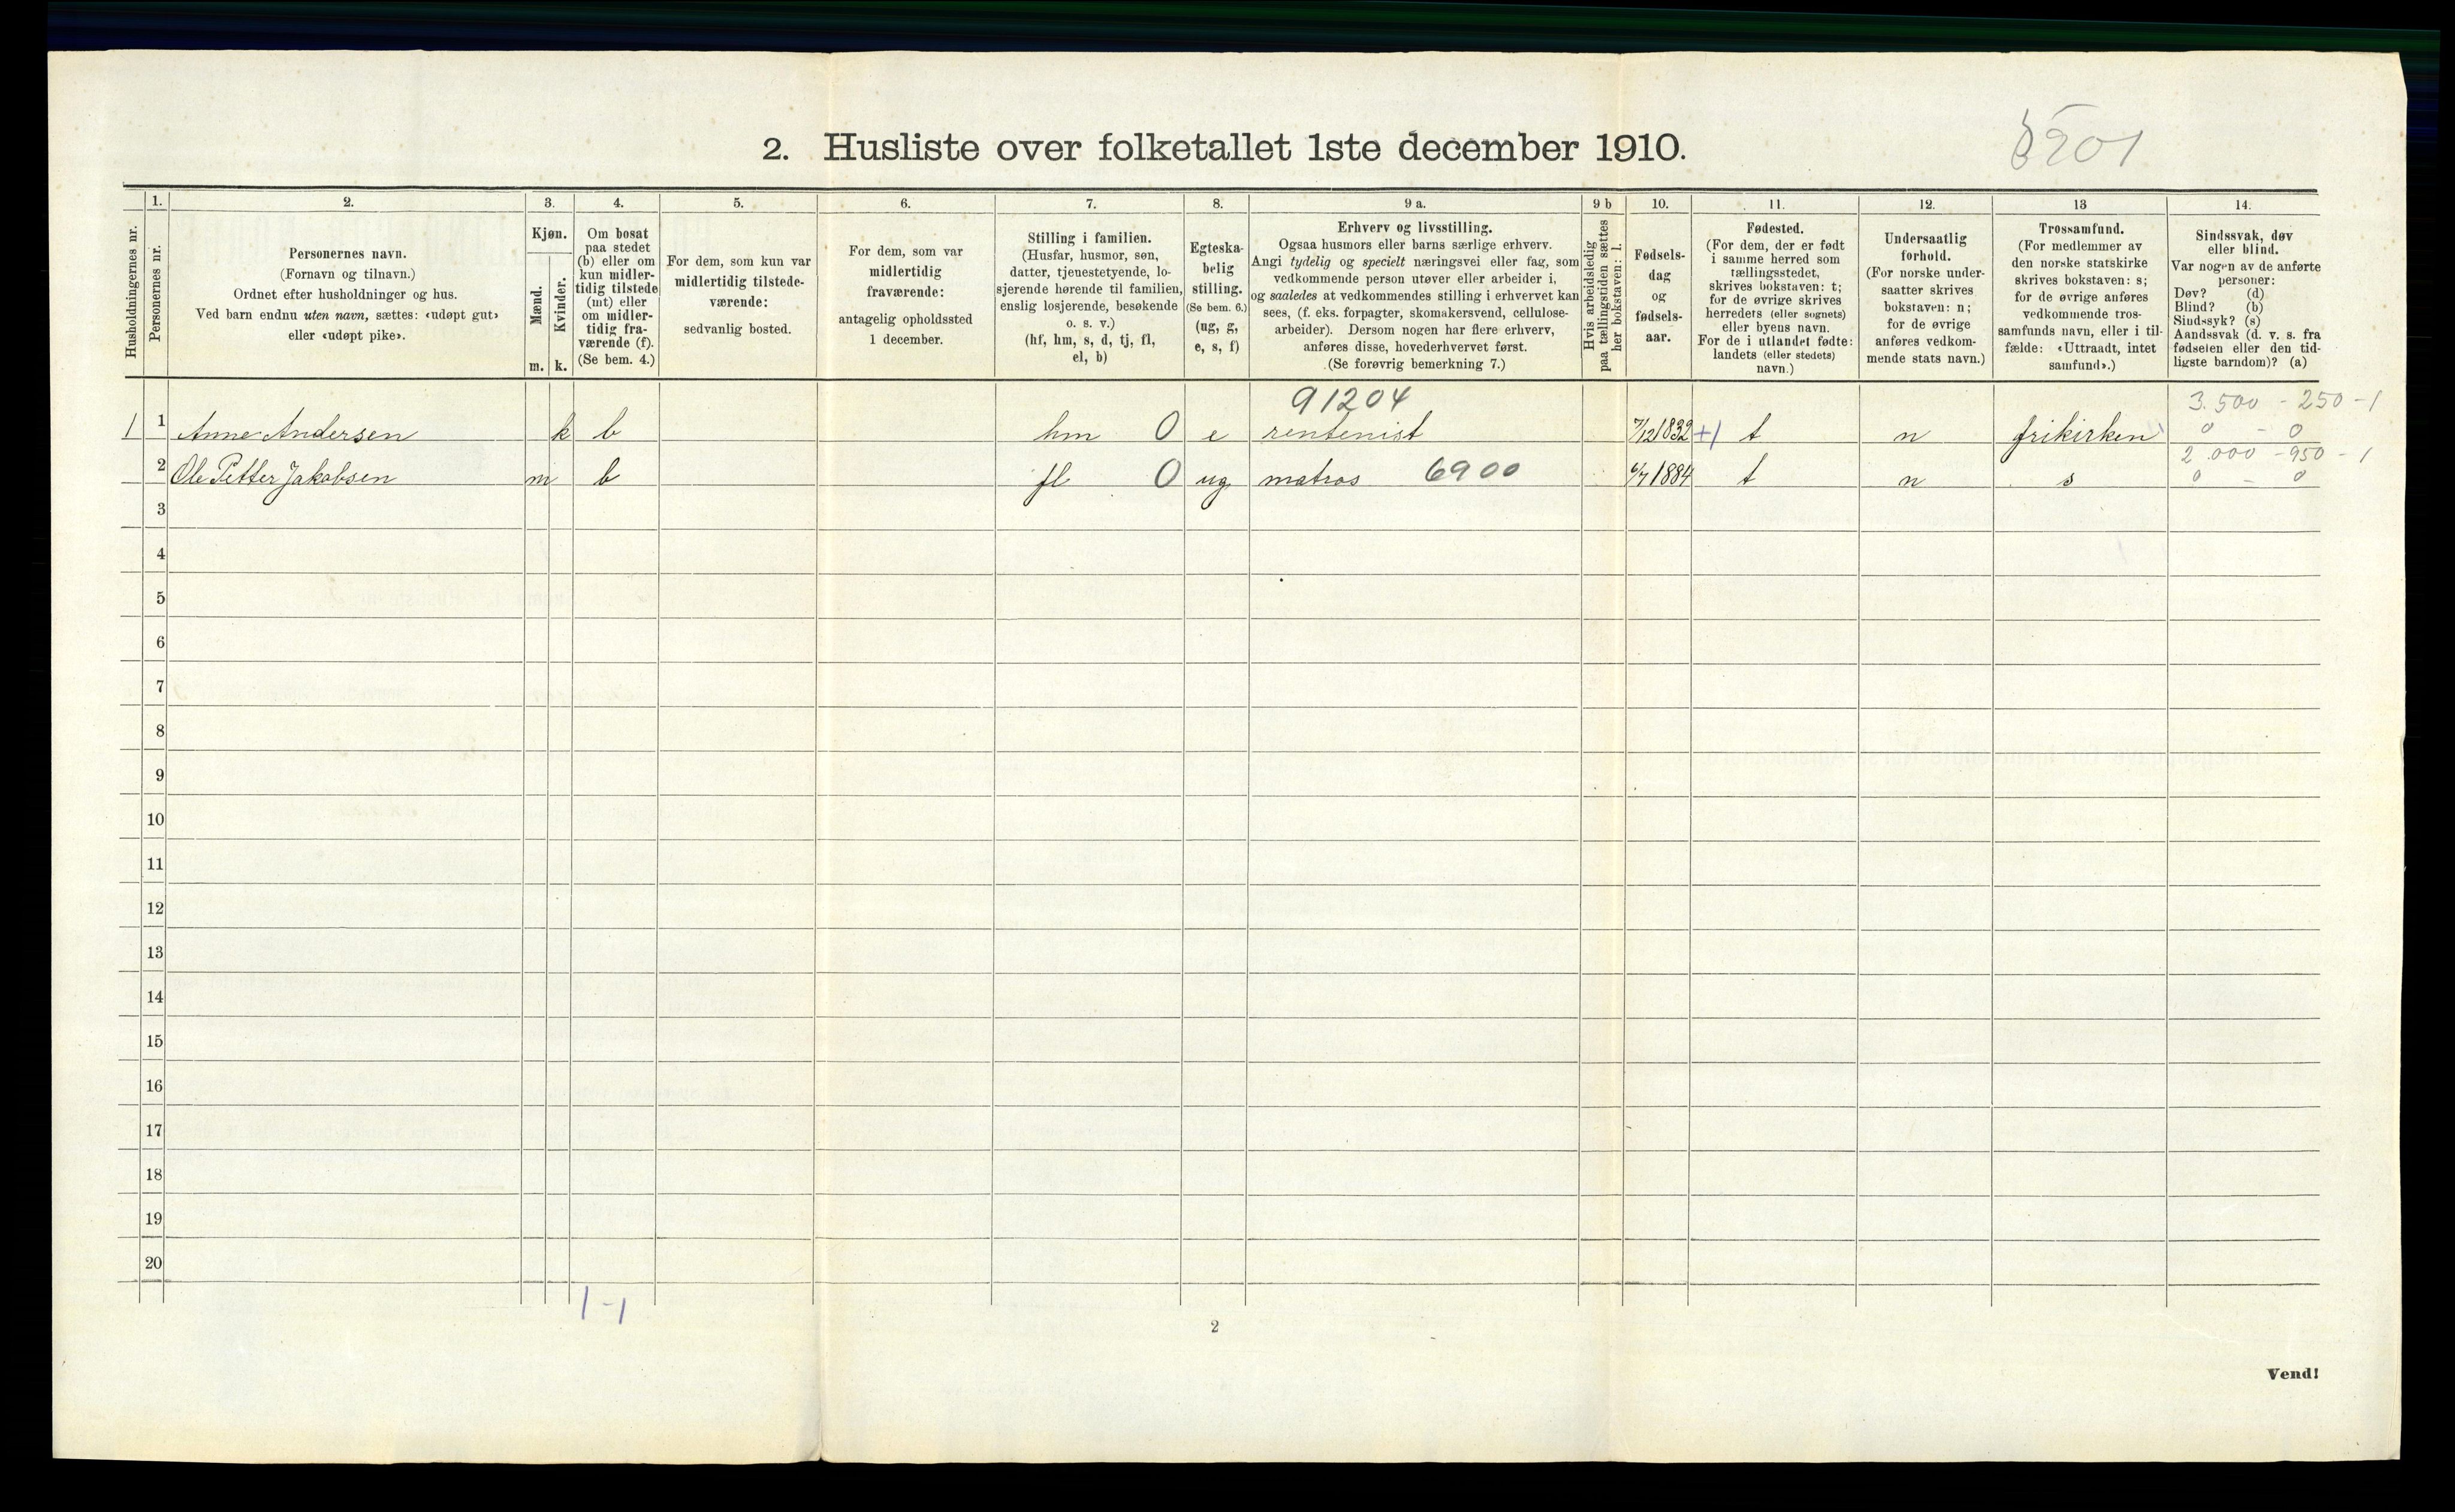 2. Husliste over folketallet 1ste december 1910.
5201
Husholdningernes nr.
1.
Personernes nr.
2.
Personernes navn.
(Fornavn og tilnavn.)
Ordnet efter husholdninger og hus.
Ved barn endnu uten navn, sættes: «udøpt gut»
eller «udøpt pike».
3.
Kjøn.
Mænd.
Kvinder.
m. k.
4.
Om bosat
paa stedet
(b) eller om
kun midler-
tidig tilstede
(mt) eller
om midler-
tidig fra-
værende (f).
(Se bem. 4.)
5.
For dem, som kun var
midlertidig tilstede-
værende:
sedvanlig bosted.
6.
For dem, som var
midlertidig
fraværende:
antagelig opholdssted
1 december.
7.
Stilling i familien.
(Husfar, husmor, søn,
datter, tjenestetyende, lo-
sjerende hørende til familien,
enslig losjerende, besøkende
o. s. v.)
(hf, hm, s, d, tj, fl,
el, b)
8.
Egteska-
belig
stilling.
(Se bem. 6.)
(ug, g,
e, s, f)
9 a.
Erhverv og livsstilling.
Ogsaa husmors eller barns særlige erhverv.
Angi tydelig og specielt næringsvei eller fag, som
vedkommende person utøver eller arbeider i,
og saaledes at vedkommendes stilling i erhvervet kan
sees, (f. eks. forpagter, skomakersvend, cellulose-
arbeider). Dersom nogen har flere erhverv,
anføres disse, hovederhvervet først.
(Se forøvrig bemerkning 7.)
9 b
Hvis arbeidsledig
paa tællingstiden sættes
her bokstaven: l.
10.
Fødsels-
dag
og
fødsels-
aar.
11.
Fødested.
(For dem, der er født
i samme herred som
tællingsstedet,
skrives bokstaven: t;
for de øvrige skrives
herredets (eller sognets)
eller byens navn.
For de i utlandet fødte:
landets (eller stedets)
navn.)
12.
Undersaatlig
forhold.
(For norske under-
saatter skrives
bokstaven: n;
for de øvrige
anføres vedkom-
mende stats navn.)
13
Trossamfund.
(For medlemmer av
den norske statskirke
skrives bokstaven: s;
for de øvrige anføres
vedkommende tros-
samfunds navn, eller i til-
fælde: «Uttraadt, intet
samfund».)
14.
Sindssvak, døv
eller blind.
Var nogen av de anførte
personer:
Døv? (d)
Blind? (b)
Sindssyk? (s)
Aandssvak (d. v. s. fra
fødselen eller den tid-
ligste barndom)? (a)
91204 3.500 - 250 - 1
1 1 Anne Andersen k b hm 0 e rentenist 7/12 1832 +1 t n frikirken 0 - 0
2.000 - 950 - 1
2 Ole Petter Jakobsen m b fl 0 ug matros 6900 6/7 1884 t n s 0 - 0
3
4
5
6
7
8
9
10
11
12
13
14
15
16
17
18
19
20
1 - 1
2
Vend!